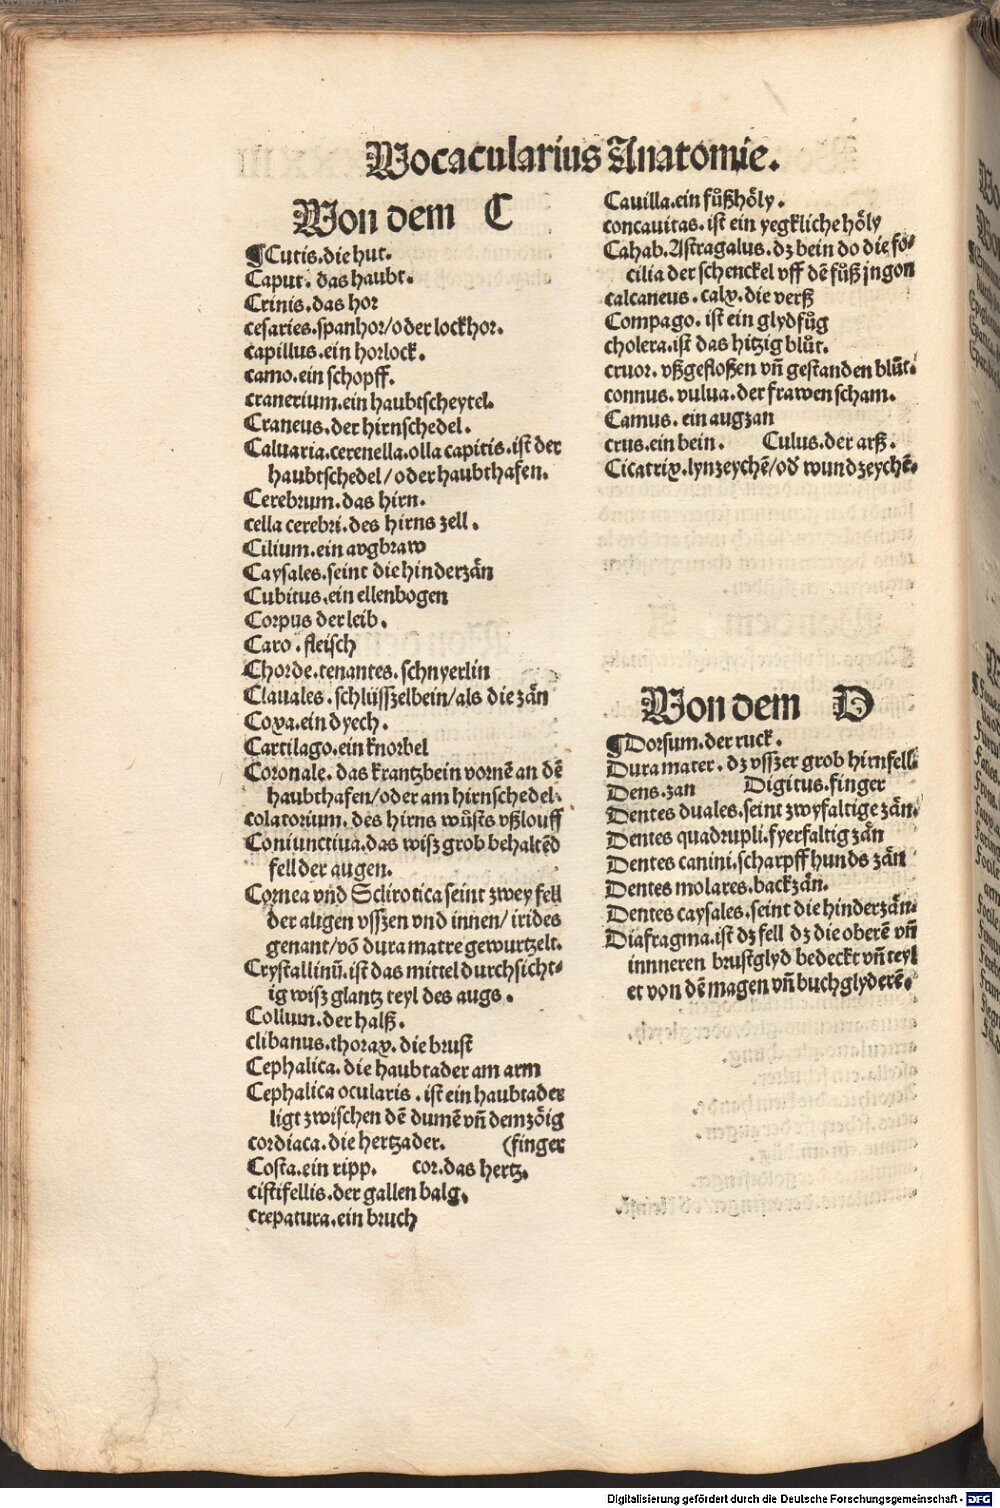 Vocacularius Anatomie.
Von dem C
¶Cutis.die hut.
Caput. das haubt.
Crinis.das hor
cesaries.spanhor/oder lockhor.
capillus.ein horlock.
camo.ein schopff.
cranerium.ein haubtscheytel.
Craneus.der hirnschedel.
Caluaria.cerenella.olla capitis.ist der
haubtschedel/oder haubthafen.
Cerebrum.das hirn.
cella cerebri.des hirns zell.
Cilium.ein avgbraw
Caysales.seint die hinderzän
Cubitus.ein ellenbogen
Corpus der leib.
Caro.fleisch
Chorde.tenantes.schnyerlin
Clauales.schlüsszelbein/als die zän
Coxa.ein dyech.
Cartilago.ein knorbel
Coronale.das krantzbein vornē an dē
haubthafen/oder am hirnschedel.
colatorium.des hirns wůsts vßlouff
Coniunctiua.das wisz grob behaltēd
fell der augen.
Cornea vnd Sclirotica seint zwey fell
der augen vsszen vnd innen/irides
genant/vō dura matre gewurtzelt.
Crystallinū.ist das mittel durchsicht⸗
ig wisz glantz teyl des augs.
Collum.der halß.
clibanus.thorax.die brust
Cephalica.die haubtader am arm
Cephalica ocularis.ist ein haubtader
ligt zwischen dē dumē vn̄ dem zöig
cordiaca.die hertzader. (finger
Costa.ein ripp. cor.das hertz.
cistifellis.der gallen balg.
crepatura.ein bruch
Cauilla.ein fůßhöly.
concauitas.ist ein yegkliche höly
Cahab.Astragalus.dz bein do die fo⸗
cilia der schenckel vff dē fůß jngon
calcaneus.calx.die verß
Compago.ist ein glydfůg
cholera.ist das hitzig blůt.
cruor.vßgefloßen vn̄ gestanden blůt.
connus.vulua.der frawen scham.
Camus.ein augzan
crus.ein bein. Culus.der arß.
Cicatrix.lynzeychē/od wundzeychē.
Von dem D
¶Dorsum.der ruck.
Dura mater.dz vsszer grob hirnfell.
Dens.zan Digitus.finger
Dentes duales.seint zwyfaltige zän.
Dentes quadrupli.fyerfaltig zän
Dentes canini.scharpff hunds zän
Dentes molares.backzän.
Dentes caysales.seint die hinderzän.
Diafragma.ist dz fell dz die oberē vn̄
innneren brustglyd bedeckt vn̄ teyl
et von dē magen vn̄ buchglyderē.
Digitalisierung gefördert durch die Deutsche Forschungsgemeinschaft - DFG